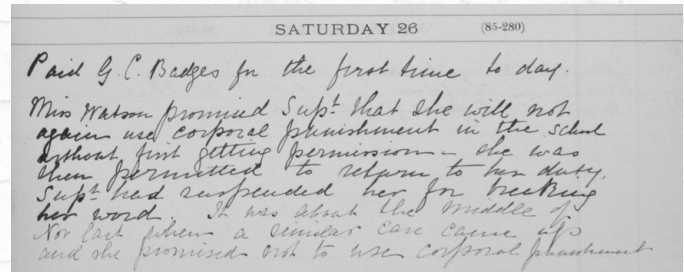 SATURDAY 26 (85-280)
Paid G. C. Badges for the first time to day.
Miss Watson promised Supt that she will not
again use corporal phunishment in the school
without first getting permission – she was
then permitted to return to her duty.
Supt had suspended her for breaking
her word. It was about the middle of
Nov last when a similar case came up
and she promised not to use corporal phunishment